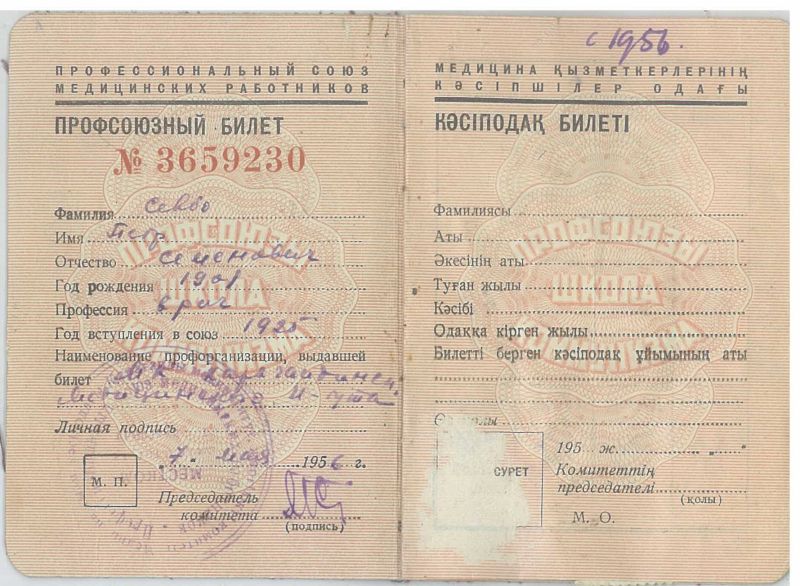 ПРОФЕССИОНАЛЬНЫЙ СОЮЗ
МЕДИЦИНСКИХ РАБОТНИКОВ
ПРОФСОЮЗНЫЙ БИЛЕТ
№ 3659230
Фамилия Севбо
Имя Петр
Отчество Семенович
Год рождения 1901
Профессия врач
Год вступления в союз 1925
Наименование профорганизации, выдавшей
билет МК Карагандинск.
Медицинского И-тута
Личная подпись
"7" мая 1956 г.
М. П.
Председатель
комитета
(подпись)
с 1956.
МЕДИЦИНА ҚЫЗМЕТКЕРЛЕРІНІҢ
КӘСІПШІЛЕР ОДАҒЫ
КӘСІПОДАҚ БИЛЕТІ
Фамилиясы
Аты
Әкесінің аты
Туған жылы
Кәсібі
Одаққа кірген жылы
Билетті берген кәсіподақ ұйымының аты
195 ж. " "
СУРЕТ
Комитеттің
председателі
(қолы)
М. О.
ПРОФСОЮЗЫ
ШКОЛА
КОММУНИЗМА
ПРОФСОЮЗЫ
ШКОЛА
КОММУНИЗМА